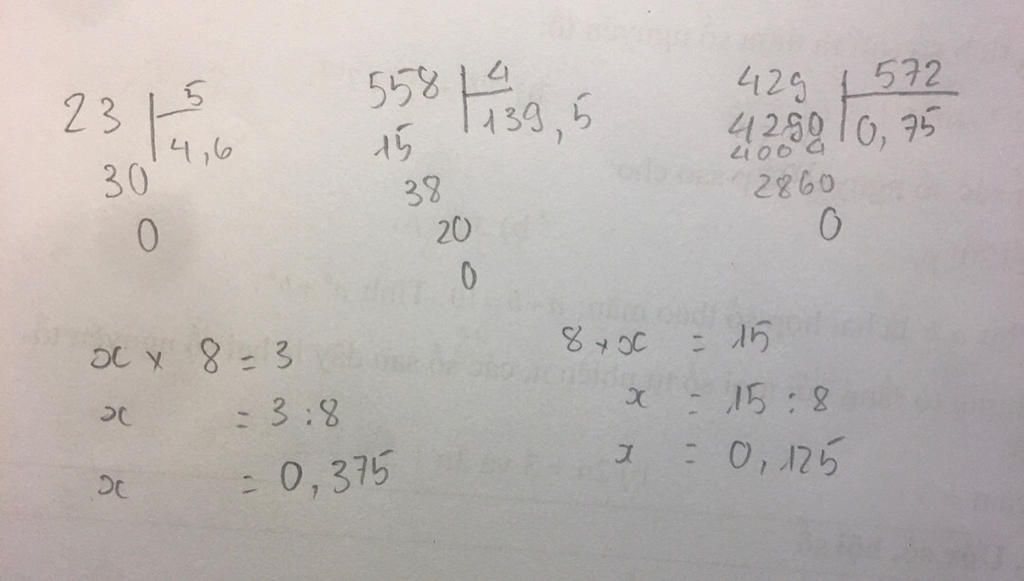 23 | 5
4,6
30
0
558 | 4
139,5
15
38
20
0
429 | 572
4290 | 0,75
4004
2860
0
x × 8 = 3
x = 3 : 8
x = 0,375
8 × x = 15
x = 15 : 8
x = 0,125